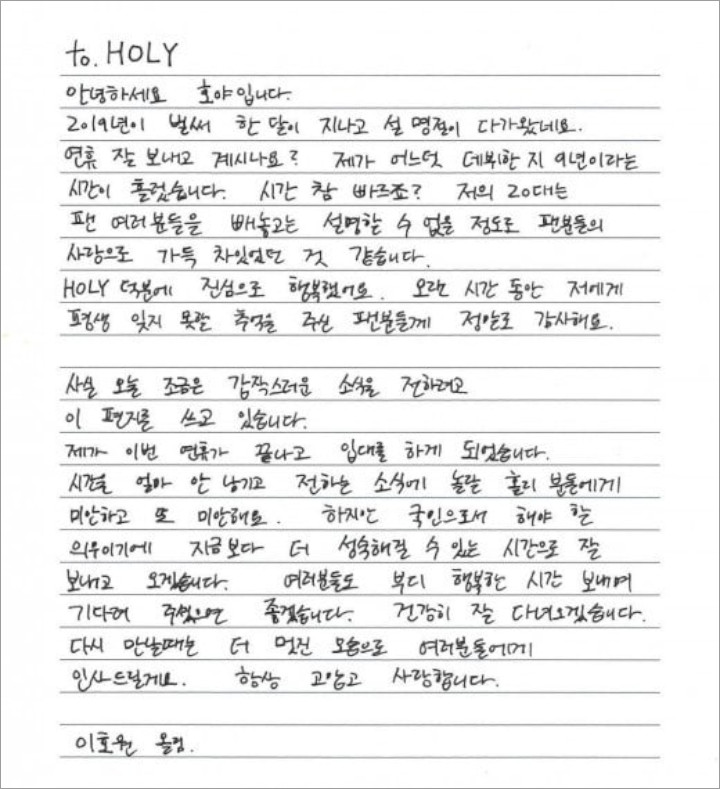 to. HOLY
안녕하세요 호야입니다.
2019년이 벌써 한 달이 지나고 설 명절이 다가왔네요.
연휴 잘 보내고 계시나요? 제가 어느덧 데뷔한 지 9년이라는
시간이 흘렀습니다. 시간 참 빠르죠? 저의 20대는
팬 여러분들을 빼놓고는 설명할 수 없을 정도로 팬분들의
사랑으로 가득 차있었던 것 같습니다.
HOLY 덕분에 진심으로 행복했어요. 오랜 시간 동안 저에게
평생 잊지 못할 추억을 주신 팬분들께 정말로 감사해요.
사실 오늘 조금은 갑작스러운 소식을 전하려고
이 편지를 쓰고 있습니다.
제가 이번 연휴가 끝나고 입대를 하게 되었습니다.
시간을 얼마 안 남기고 전하는 소식에 놀랄 홀리 분들에게
미안하고 또 미안해요. 하지만 국민으로서 해야 할
의무이기에 지금보다 더 성숙해질 수 있는 시간으로 잘
보내고 오겠습니다. 여러분들도 부디 행복한 시간 보내며
기다려 주셨으면 좋겠습니다. 건강히 잘 다녀오겠습니다.
다시 만날때는 더 멋진 모습으로 여러분들에게
인사드릴게요. 항상 고맙고 사랑합니다.
이호원 올림.